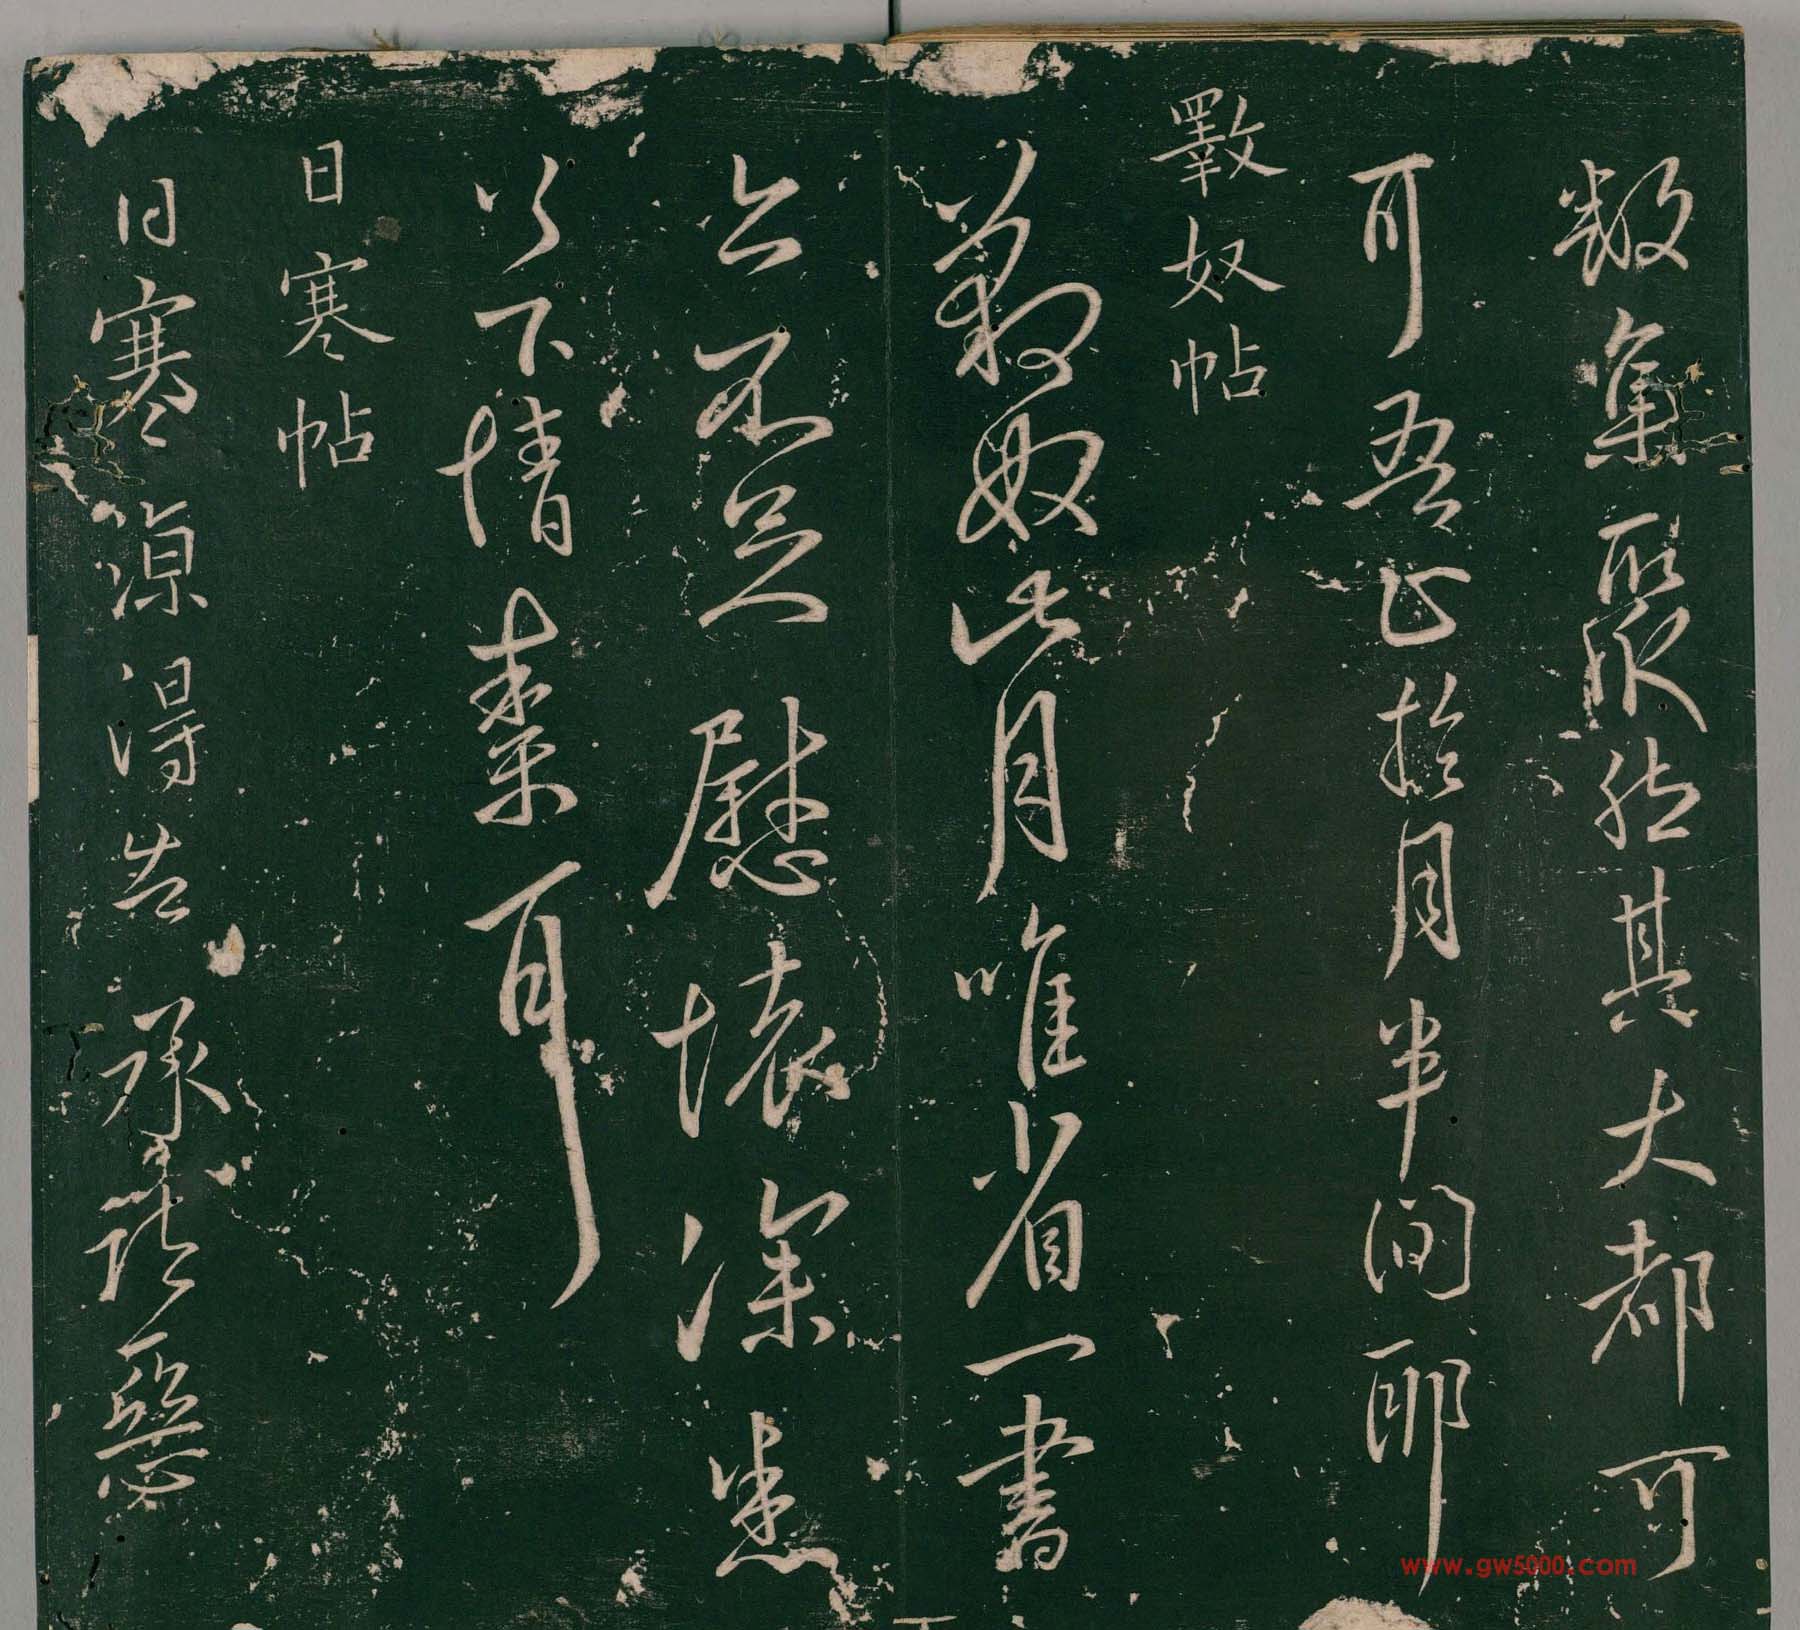 數集聚然其大都可
可吾以拾月半間耶
斁奴帖
斁奴此月唯省一書
亦不足慰懷深悉
以下情素耳
日寒帖
日寒凉得告承諸惡
www.gw5000.com